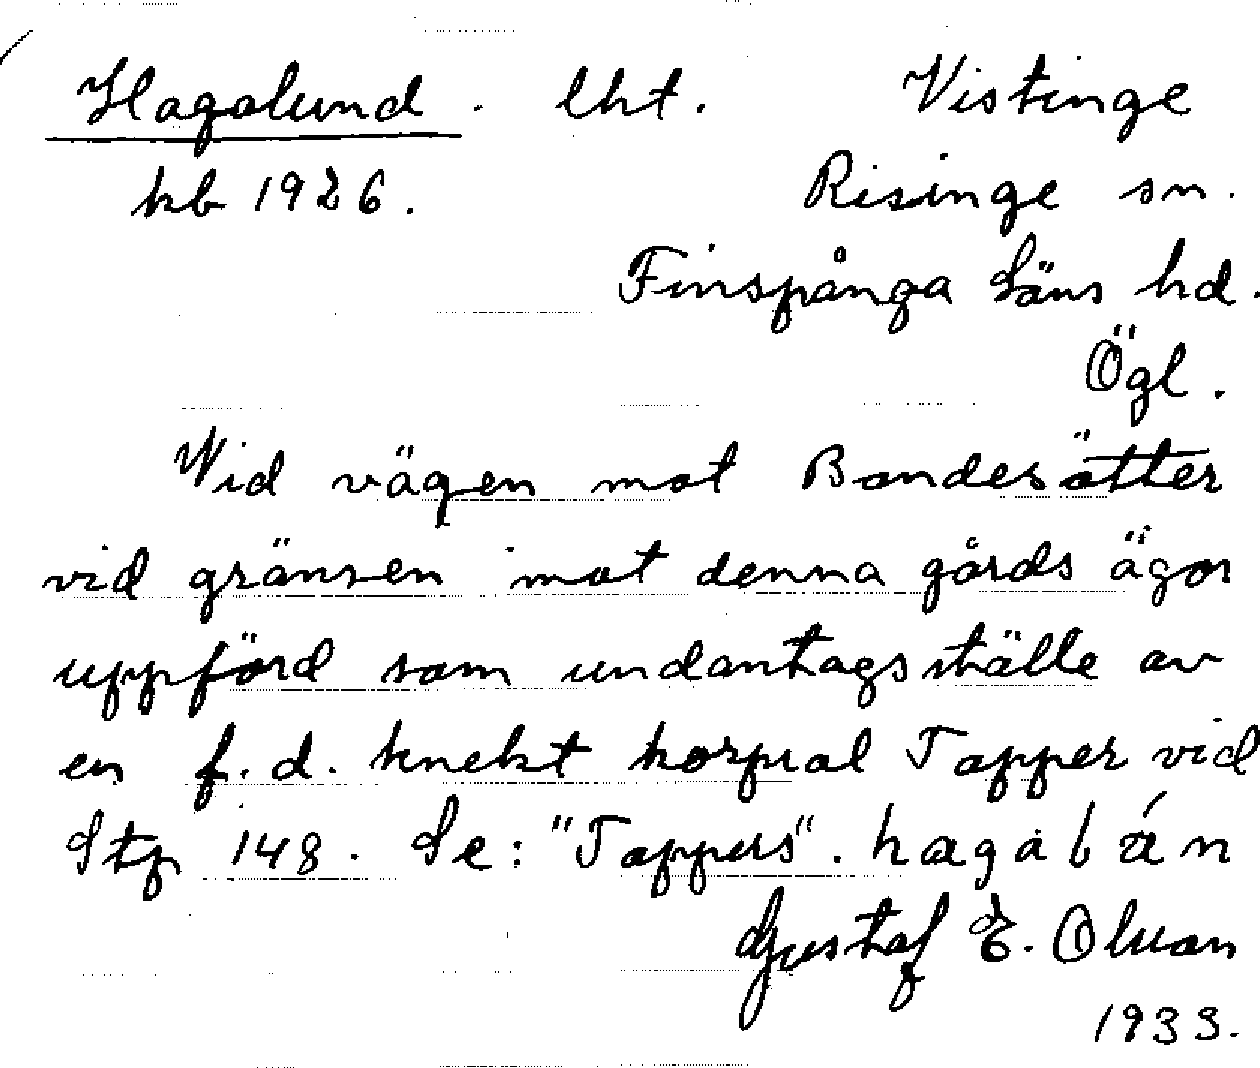 Hagalund. lht. Vistinge
kb 1926. Risinge sn.
Finspånga Läns hd.
Ögl.
Vid vägen mot Bondesätter
vid gränsen mot denna gårds ägor
uppförd som undantagsställe av
en f.d. knekt korpral Tapper vid
Stp 148. Se: "Tappus".
Gustaf E. Olson
1933.